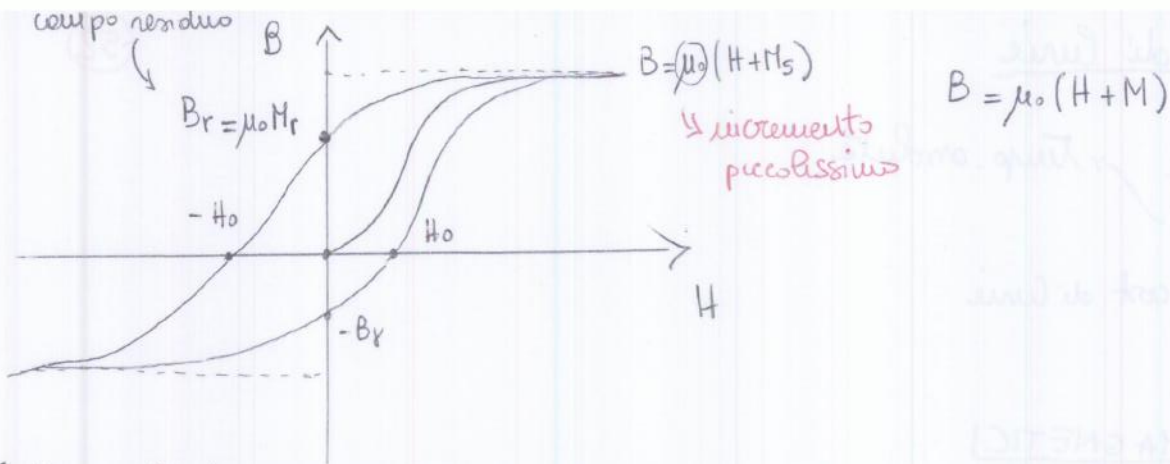 campo residuo
B
B = μ₀ (H + Ms)
B = μ₀ (H + M)
Br = μ₀ Mr
↘ incremento
piccolissimo
- H₀
H₀
H
- Br